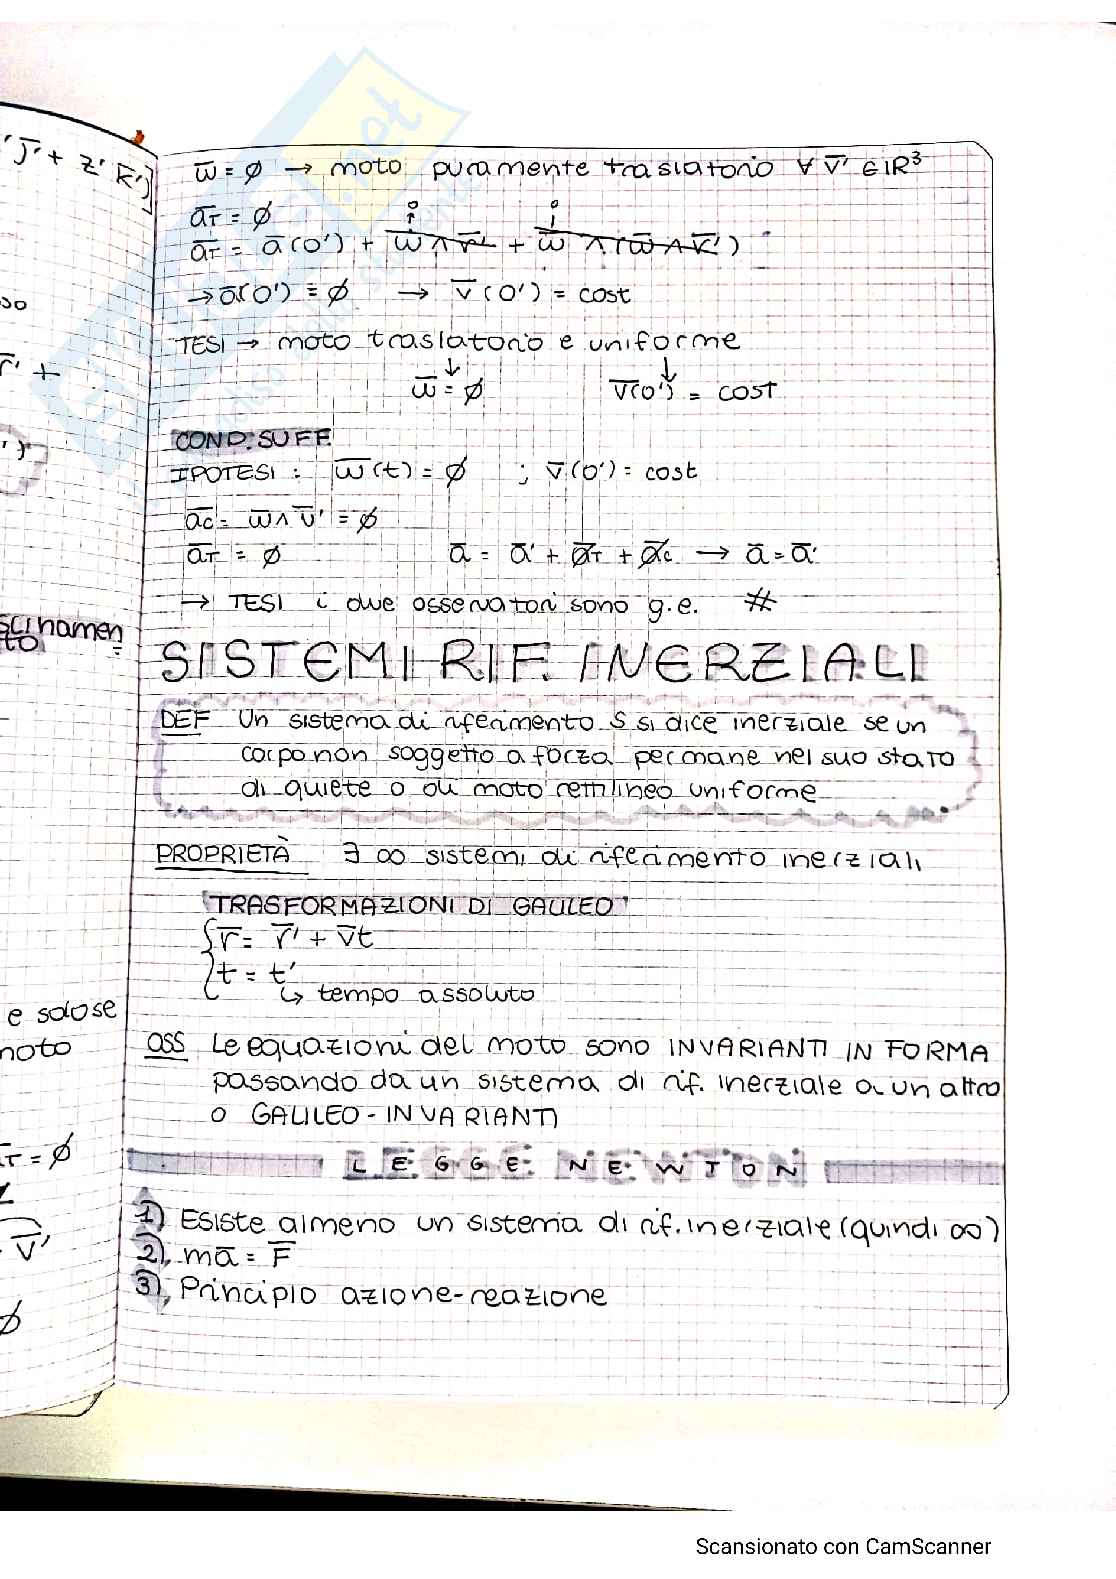 'j̄' + z' k̄']
w̄ = ∅ → moto puramente traslatorio ∀ v̄' ∈ ℝ³
āτ = ∅
āτ = ā(O') + w̄ ∧ r̄' + w̄ ∧ (w̄ ∧ r̄')
→ ā(O') = ∅ → v̄(O') = cost
TESI → moto traslatorio e uniforme
w̄ = ∅ v̄(O') = cost
COND. SUFF.
IPOTESI : w̄(t) = ∅ ; v̄(O') = cost
āc = w̄ ∧ v̄' = ∅
āτ = ∅ ā = ā' + āτ + āc → ā = ā'
→ TESI i due osservatori sono g.e. #
SISTEMI RIF. INERZIALI
DEF Un sistema di riferimento S si dice inerziale se un
corpo non soggetto a forza permane nel suo stato
di quiete o di moto rettilineo uniforme
PROPRIETÀ ∃ ∞ sistemi di riferimento inerziali
TRASFORMAZIONI DI GALILEO
{ r̄ = r̄' + v̄t
t = t'
↳ tempo assoluto
OSS Le equazioni del moto sono INVARIANTI IN FORMA
passando da un sistema di rif. inerziale a un altro
o GALILEO-INVARIANTI
LEGGE NEWTON
1) Esiste almeno un sistema di rif. inerziale (quindi ∞)
2) mā = F̄
3) Principio azione-reazione
so
r̄' +
')
scinamen
to
e solo se
moto
āτ = ∅
v̄'
∅
Scansionato con CamScanner